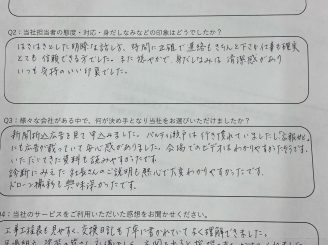 Q2：当社担当者の態度・対応・身だしなみなどの印象はどうでしたか？
はきはきとした明瞭な話し方、時間に正確で連絡もきちんと下さり仕事も確実
とても信頼できる方でした。また穏やかで、身だしなみは清潔感があり
いつも気持のいい好感でした。
Q3：様々な会社がある中で、何が決め手となり当社をお選びいただけましたか？
新聞折込広告を見て申込みました。バルティ瀬戸は行き慣れていましたし
にも広告が載っていて安心感がありました。会場でのビデオはわかりやすかったです。
いただいてきた資料も読みやすかったです。
診断にみえた社長さんのご説明も熱心で大変わかりやすかったです。
ドローン撮影も興味深かったです。
4：当社のサービスをご利用いただいた感想をお聞かせください。
工事工程表も見やすく、交換日記も丁寧に書かれていて良く理解できました。